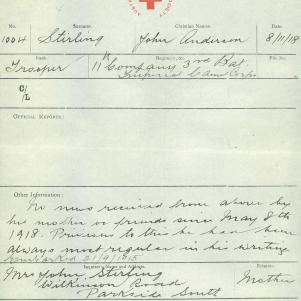 No. Surname. Christian Names. Date.
1004 Stirling John Anderson 8/11/18
Rank. Regiment, &c. File No.
Trooper 11th Company 3rd Bat.
Imperial Camel Corps
C/L
OFFICIAL REPORTS:
Other Information:
No news received from above by
his mother or friends since May 8th
1918. Previous to this he had been
always most regular in his writing
Embarked 21/9/1915
Inquirer's Name and Address. Relation.
Mrs John Stirling Mother
Wilkinson Road
Parkside South